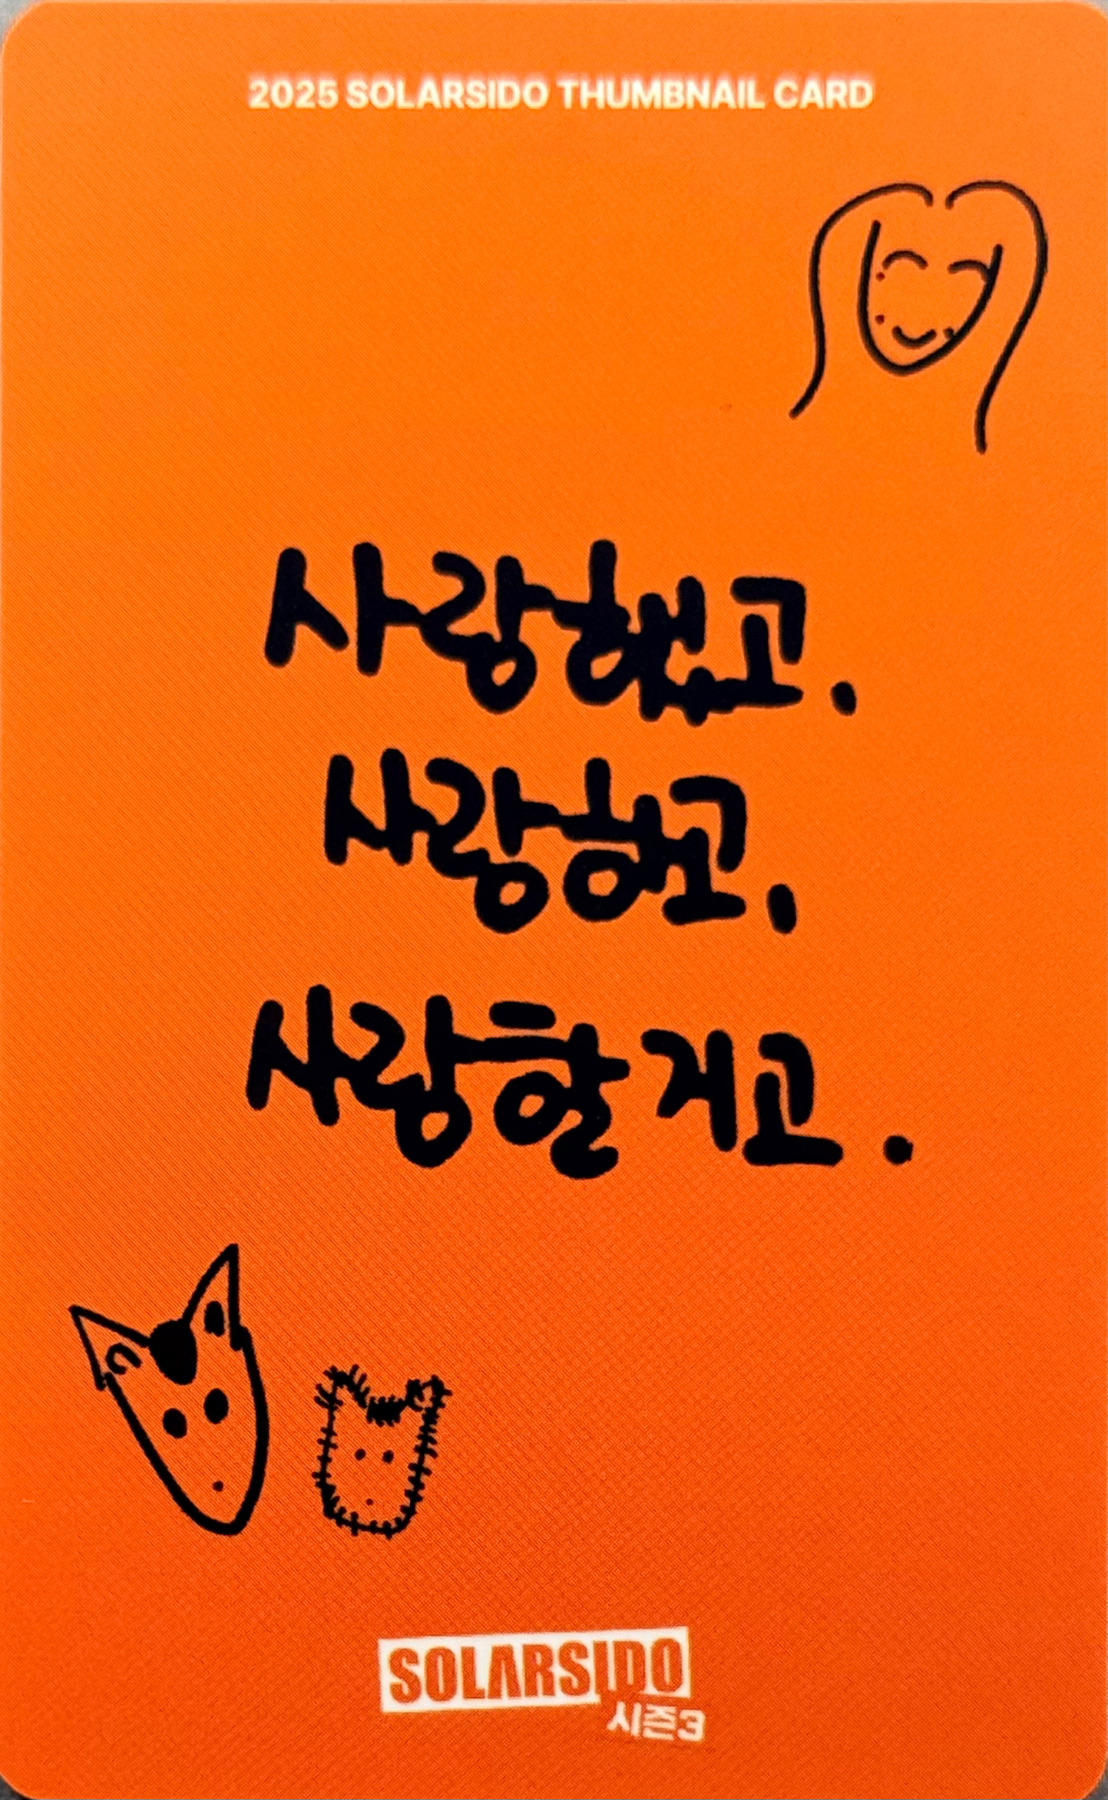 2025 SOLARSIDO THUMBNAIL CARD
사랑했고.
사랑하고.
사랑할거고.
SOLARSIDO
시즌3